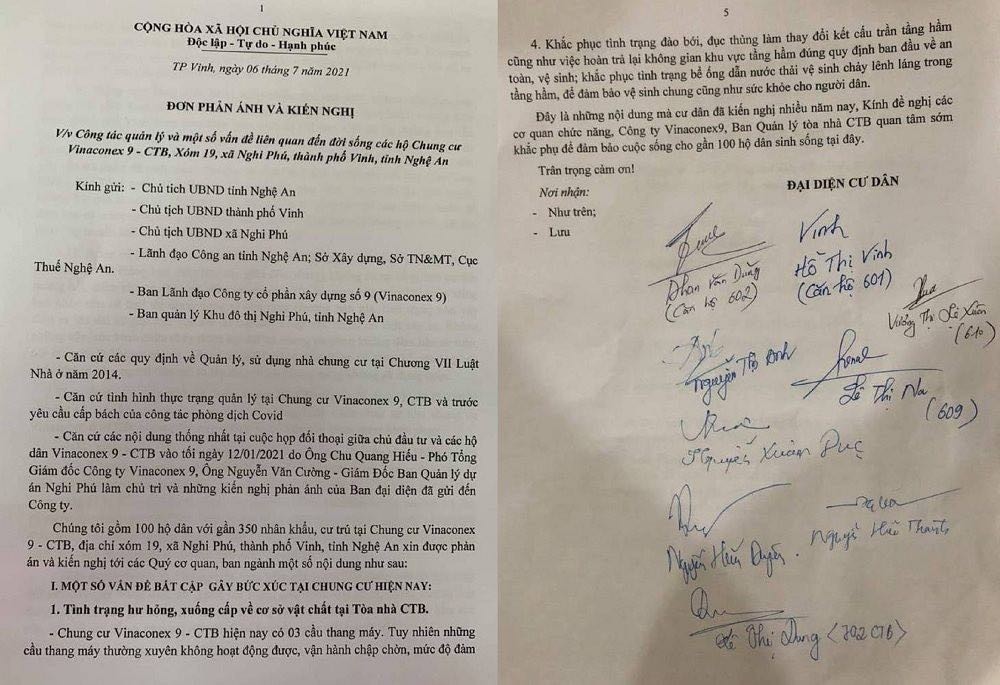 1
CỘNG HÒA XÃ HỘI CHỦ NGHĨA VIỆT NAM
Độc lập - Tự do - Hạnh phúc
TP Vinh, ngày 06 tháng 7 năm 2021
ĐƠN PHẢN ÁNH VÀ KIẾN NGHỊ
V/v Công tác quản lý và một số vấn đề liên quan đến đời sống các hộ Chung cư
Vinaconex 9 - CTB, Xóm 19, xã Nghi Phú, thành phố Vinh, tỉnh Nghệ An
Kính gửi: - Chủ tich UBND tỉnh Nghệ An
- Chủ tịch UBND thành phố Vinh
- Chủ tịch UBND xã Nghi Phú
- Lãnh đạo Công an tỉnh Nghệ An; Sở Xây dựng, Sở TN&MT, Cục
Thuế Nghệ An.
- Ban Lãnh đạo Công ty cổ phần xây dựng số 9 (Vinaconex 9)
- Ban quản lý Khu đô thị Nghi Phú, tỉnh Nghệ An
- Căn cứ các quy định về Quản lý, sử dụng nhà chung cư tại Chương VII Luật
Nhà ở năm 2014.
- Căn cứ tình hình thực trạng quản lý tại Chung cư Vinaconex 9, CTB và trước
yêu cầu cấp bách của công tác phòng dịch Covid
- Căn cứ các nội dung thống nhất tại cuộc họp đối thoại giữa chủ đầu tư và các hộ
dân Vinaconex 9 - CTB vào tối ngày 12/01/2021 do Ông Chu Quang Hiếu - Phó Tổng
Giám đốc Công ty Vinaconex 9, Ông Nguyễn Văn Cường - Giám Đốc Ban Quản lý dự
án Nghi Phú làm chủ trì và những kiến nghị phản ánh của Ban đại diện đã gửi đến
Công ty.
Chúng tôi gồm 100 hộ dân với gần 350 nhân khẩu, cư trú tại Chung cư Vinaconex
9 - CTB, địa chỉ xóm 19, xã Nghi Phú, thành phố Vinh, tỉnh Nghệ An xin được phản
ánh và kiến nghị tới các Quý cơ quan, ban ngành một số nội dung như sau:
I. MỘT SỐ VẤN ĐỀ BẤT CẬP GÂY BỨC XÚC TẠI CHUNG CƯ HIỆN NAY:
1. Tình trạng hư hỏng, xuống cấp về cơ sở vật chất tại Tòa nhà CTB.
- Chung cư Vinaconex 9 - CTB hiện nay có 03 cầu thang máy. Tuy nhiên những
cầu thang máy thường xuyên không hoạt động được, vận hành chập chờn, mức độ đảm
5
4. Khắc phục tình trạng đào bới, đục thủng làm thay đổi kết cấu trần tầng hầm
cũng như việc hoàn trả lại không gian khu vực tầng hầm đúng quy định ban đầu về an
toàn, vệ sinh; khắc phục tình trạng bể ống dẫn nước thải vệ sinh chảy lênh láng trong
tầng hầm, để đảm bảo vệ sinh chung cũng như sức khỏe cho người dân.
Đây là những nội dung mà cư dân đã kiến nghị nhiều năm nay, Kính đề nghị các
cơ quan chức năng, Công ty Vinaconex9, Ban Quản lý tòa nhà CTB quan tâm sớm
khắc phụ để đảm bảo cuộc sống cho gần 100 hộ dân sinh sống tại đây.
Trân trọng cảm ơn!
Nơi nhận:
ĐẠI DIỆN CƯ DÂN
- Như trên;
- Lưu
Vinh
Hồ Thị Vinh
(Căn hộ 601)
Phan Văn Dũng
(Căn hộ 602)
Vương Thị Lệ Xuân
(610)
Nguyễn Thị Anh
Lê Thị Na
(609)
Nguyễn Xuân Đức
Nguyễn Hữu Duyên
Nguyễn Hữu Thanh
Lê Thị Dung <702 CTB>